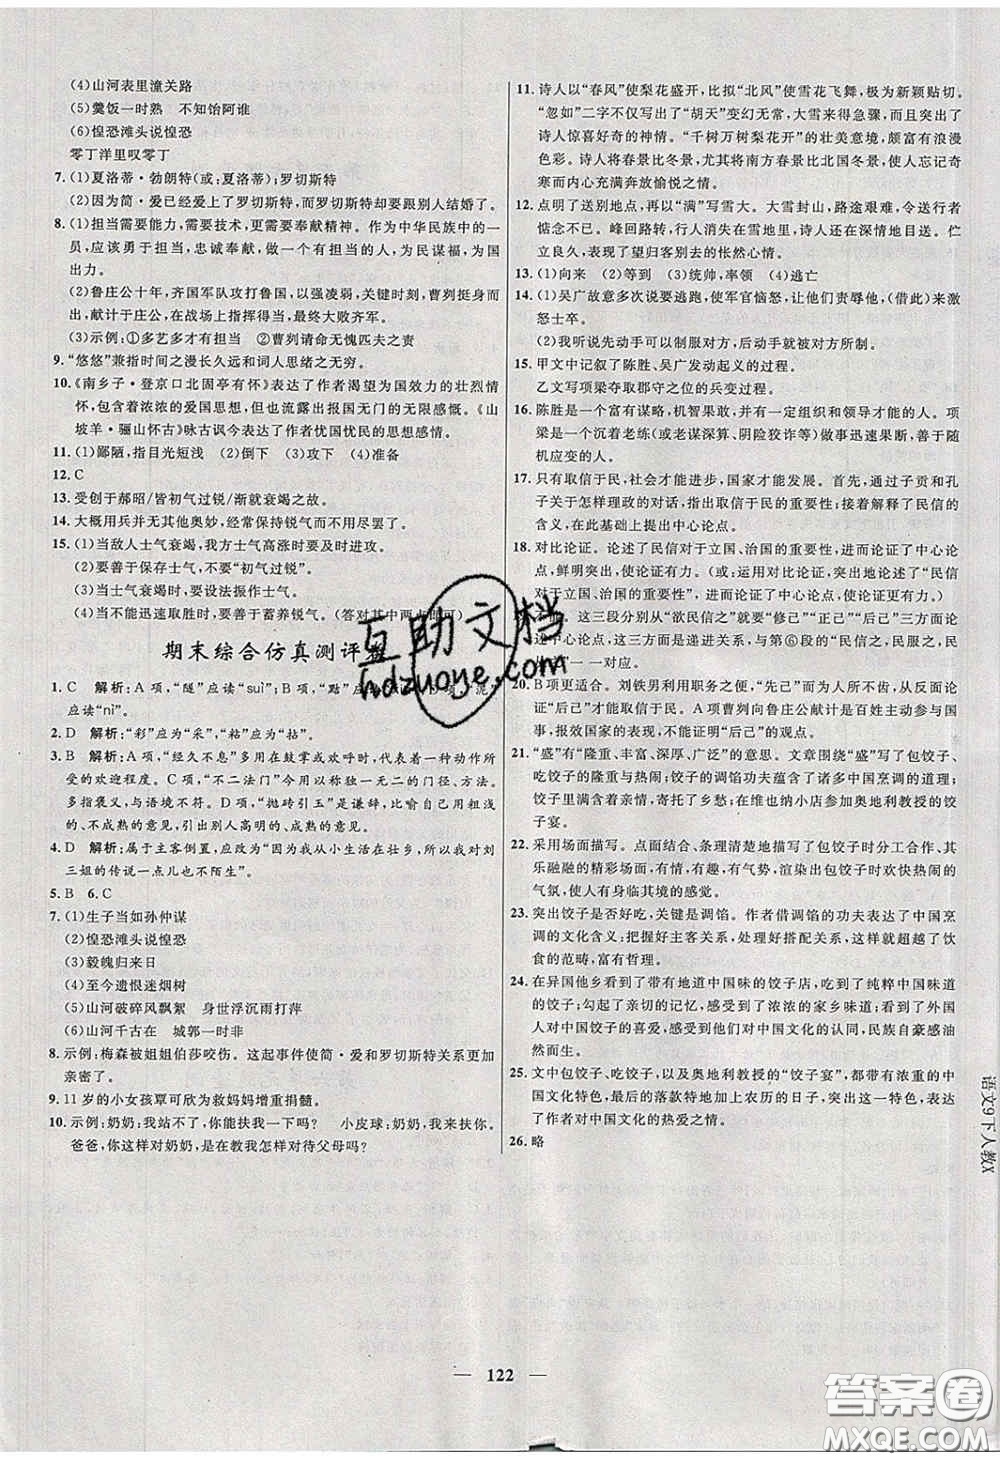 (4)山河表里潼关路
(5)羹饭一时熟　不知饴阿谁
(6)惶恐滩头说惶恐
零丁洋里叹零丁
7. (1)夏洛蒂·勃朗特(或:夏洛蒂);罗切斯特
(2)因为简·爱已经爱上了罗切斯特,而罗切斯特却要跟别人结婚了。
8. (1)担当需要能力,需要技术,更需要奉献精神。作为中华民族中的一
员,应该勇于担当,忠诚奉献,做一个有担当的人,为民谋福,为国
出力。
(2)鲁庄公十年,齐国军队攻打鲁国,以强凌弱,关键时刻,曹刿挺身而
出,献计于庄公,在战场上指挥得当,最终大败齐军。
(3)示例:①多艺多才有担当　②曹刿请命无愧匹夫之责
9. “悠悠”兼指时间之漫长久远和词人思绪之无穷。
10. 《南乡子·登京口北固亭有怀》表达了作者渴望为国效力的壮烈情
怀,包含着浓浓的爱国思想,但也流露出报国无门的无限感慨。《山
坡羊·骊山怀古》咏古讽今表达了作者忧国忧民的思想感情。
11. (1)鄙陋,指目光短浅　(2)倒下　(3)攻下　(4)准备
12. C
13. 受创于郝昭/皆初气过锐/渐就衰竭之故。
14. 大概用兵并无其他奥妙,经常保持锐气而不用尽罢了。
15. (1)当敌人士气衰竭,我方士气高涨时要进攻。
(2)要善于保存士气,不要“初气过锐”。
(3)当士气衰竭时,要设法振作士气。
(4)当不能迅速取胜时,要善于蓄养锐气。(答对其中两点即可)
期末综合仿真测评卷
1. C　解析:A项,“隧”应读“suì”;B项,“黠”应读“xiá”;D项,“泥”
应读“nì”。
2. D　解析:“彩”应为“采”,“粘”应为“拈”。
3. B　解析:A项,“经久不息”多用在鼓掌或欢呼时,代表着一种动作所
受的欢迎程度。C项,“不二法门”今用以称独一无二的门径、方法。
多指褒义,与语境不符。D项,“抛砖引玉”是谦辞,比喻自己用粗浅
的、不成熟的意见,引出别人高明的、成熟的意见。
4. D　解析:属于主客倒置,应改为“因为我从小生活在壮乡,所以我对刘
三姐的传说一点儿也不陌生”。
5. B　6. C
7. (1)生子当如孙仲谋
(2)惶恐滩头说惶恐
(3)毅魄归来日
(4)至今遗恨迷烟树
(5)山河破碎风飘絮　身世浮沉雨打萍
(6)山河千古在　城郭一时非
8. 示例:梅森被姐姐伯莎咬伤。这起事件使简·爱和罗切斯特关系更加
亲密了。
9. 11岁的小女孩覃可欣为救妈妈增重捐髓。
10. 示例:奶奶:我站不了了,你能扶我一下吗?　小皮球:奶奶,我来扶你。
爸爸,你这样对奶奶,是在教我怎样对待父母吗?
11. 诗人以“春风”使梨花盛开,比拟“北风”使雪花飞舞,极为新颖贴切。
“忽如”二字不仅写出了“胡天”变幻无常,大雪来得急骤,而且写出了
诗人惊喜好奇的神情。“千树万树梨花开”的壮美意境,颇富有浪漫
色彩。诗人将春景比冬景,尤其将南方春景比北国冬景,几使人忘记奇
寒而内心充满奔放愉悦之情。
12. 点明了送别地点,再以“满”写雪大。大雪封山,路途艰难,令送行者
惦念不已。峰回路转,行人消失在雪地里,诗人还在深情地目送。伫
立良久,表现了望归客去的怅然心情。
13. (1)向来　(2)等到　(3)统帅,率领　(4)逃亡
14. (1)吴广故意多次说要逃跑,使军官恼怒,让他们责辱他,(借此)来激
怒士卒。
(2)我听说先动手可以制服对方,后动手就被对方所制。
15. 甲文中记叙了陈胜、吴广发动起义的过程。
乙文写项梁夺取郡守之位的兵变过程。
16. 陈胜是一个富有谋略,机智果敢,并有一定组织和领导才能的人。项
梁是一个沉着老练(或老谋深算、阴险狡诈等)做事迅速果断,善于随
机应变的人。
17. 只有取信于民,社会才能进步,国家才能发展。首先,通过子贡和孔
子关于怎样理政的对话,指出取信于民的重要性;接着解释了民信的
含义,在此基础上提出中心论点。
18. 对比论证。论述了民信对于立国、治国的重要性,进而论证了中心论
点,鲜明突出,使论证有力。(或:运用对比论证,论述了“民信
对于立国、治国的重要性”,进而论证了中心论点,使论证更有力。)
不能。这三段分别从“欲民信之”就要“修己”“正己”“后己”三方
中心论点,这三方面是递进关系,与第⑥段的“民信之,民服之,民
一一对应。
20. B项更适合。刘铁男利用职务之便,“先己”而为人所不齿,从反面论
证“后己”才能取信于民。A项曹刿向鲁庄公献计是百姓主动与政府
的配合,表现的是爱国,不能证明“后己”的观点。
21. “盛”有“隆重、丰富、深厚、广泛”的意思。文章围绕“盛”写了包饺子、
吃饺子的隆重与热闹;饺子的调馅功夫蕴含了诸多中国烹调的道理;
饺子里面满含着亲情,寄托了乡愁;在维也纳小店参加奥地利教授的饺
子宴。
22. 采用场面描写。点面结合、条理清楚地描写了包饺子时分工合作、其
乐融融的精彩场面,有情,有趣,有爱,有韵,渲染出包饺子时欢快热闹的
气氛,使人有身临其境的感觉。
23. 突出饺子是否好吃,关键是调馅。作者借调馅的功夫表达了中国烹
调的文化含义:把握好主客关系,处理好搭配关系,这样就超越了饮
食的范畴,富有哲理。
24. 在异国他乡看到了带有地道中国味的饺子店,吃到了纯粹中国味的
饺子;勾起了亲切的记忆,感受到了浓浓的家乡味道;看到了外国
人对中国饺子的喜爱,感受到了他们对中国文化的认同,民族自豪感油
然而生。
25. 文中包饺子、吃饺子,以及奥地利教授的“饺子宴”,都带有浓重的中
国文化特色,最后的落款特地加上农历的日子,突出这一特色,表达
了作者对中国文化的热爱之情。
26. 略
语文9下人教X
互助文档
hdzuoye.com
— 122 —
答案圈
MXQE.COM